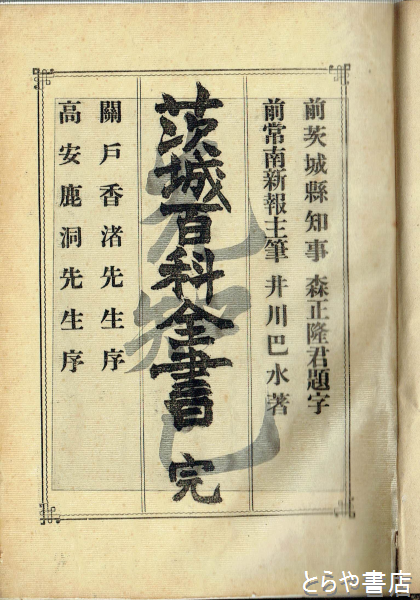 前茨城縣知事 森正隆君題字
前常南新報主筆 井川巴水著
茨城百科全書 完
關戶香渚先生序
高安鹿洞先生序
とらや書店